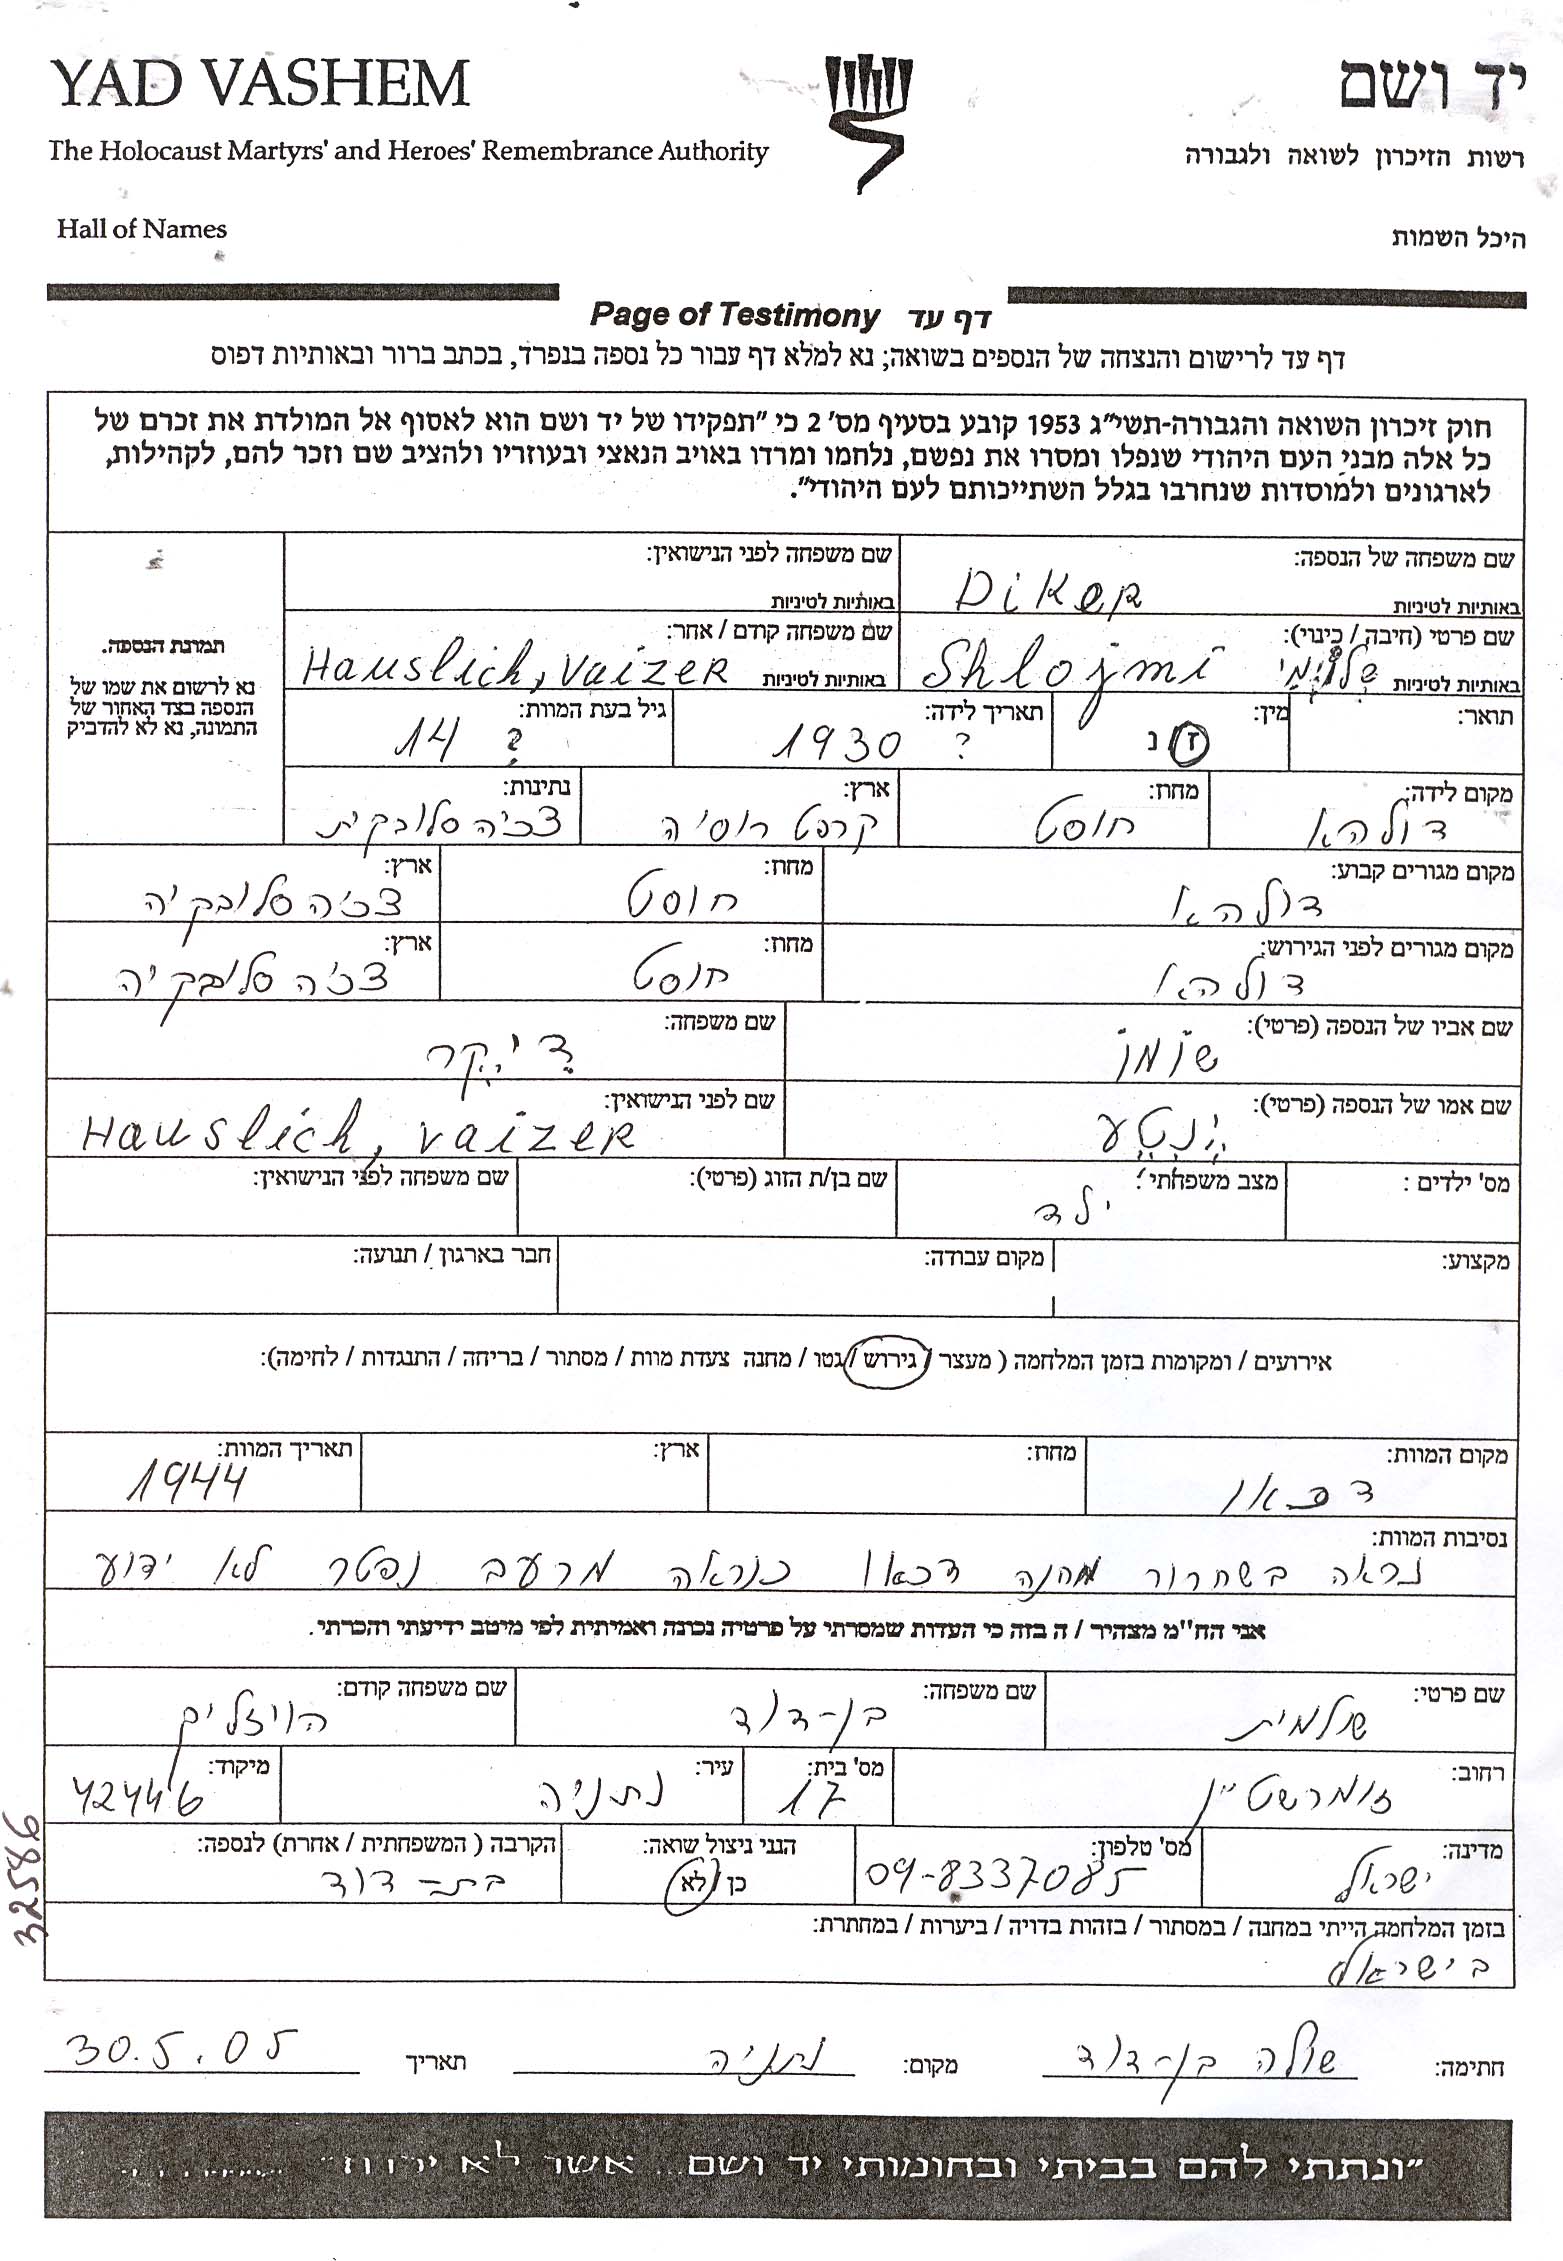 YAD VASHEM
יד ושם
The Holocaust Martyrs' and Heroes' Remembrance Authority
רשות הזיכרון לשואה ולגבורה
Hall of Names
היכל השמות
Page of Testimony דף עד
דף עד לרישום והנצחה של הנספים בשואה; נא למלא דף עבור כל נספה בנפרד, בכתב ברור ובאותיות דפוס
חוק זיכרון השואה והגבורה-תשי"ג 1953 קובע בסעיף מס' 2 כי "תפקידו של יד ושם הוא לאסוף אל המולדת את זכרם של
כל אלה מבני העם היהודי שנפלו ומסרו את נפשם, נלחמו ומרדו באויב הנאצי ובעוזריו ולהציב שם וזכר להם, לקהילות,
לארגונים ולמוסדות שנחרבו בגלל השתייכותם לעם היהודי".
תמונת הנספה.
נא לרשום את שמו של
הנספה בצד האחור של
התמונה, נא לא להדביק
שם משפחה של הנספה:
באותיות לטיניות Diker
שם משפחה לפני הנישואין:
באותיות לטיניות
שם פרטי (חיבה / כינוי):
באותיות לטיניות שלוימי Shlojmi
שם משפחה קודם / אחר:
באותיות לטיניות Hauslich, Vaizer
תואר:
מין: ז נ
תאריך לידה: ? 1930
גיל בעת המוות: ? 14
מקום לידה: דולהא
מחוז: חוסט
ארץ: קרפט רוסיה
נתינות: צכיה סלובקית
מקום מגורים קבוע: דולהא
מחוז: חוסט
ארץ: צכיה סלובקיה
מקום מגורים לפני הגירוש: דולהא
מחוז: חוסט
ארץ: צכיה סלובקיה
שם אביו של הנספה (פרטי):
שם משפחה: דיקר
שם אמו של הנספה (פרטי): ינטע
שם לפני הנישואין: Hauslich, Vaizer
מס' ילדים :
מצב משפחתי: ילד
שם בן/ת הזוג (פרטי):
שם משפחה לפני הנישואין:
מקצוע:
מקום עבודה:
חבר בארגון / תנועה:
אירועים / ומקומות בזמן המלחמה ( מעצר / גירוש / גטו / מחנה צעדת מוות / מסתור / בריחה / התנגדות / לחימה):
מקום המוות: דכאו
מחוז:
ארץ:
תאריך המוות: 1944
נסיבות המוות:
נראה בשחרור מחנה דכאו כנראה מרעב נפטר לא ידוע
אני הח"מ מצהיר / ה בזה כי העדות שמסרתי על פרטיה נכונה ואמיתית לפי מיטב ידיעתי והכרתי.
שם פרטי: שולמית
שם משפחה: בן-דוד
שם משפחה קודם: הויזליך
רחוב: זומרשטיין
מס' בית: 17
עיר: נתניה
מיקוד: 42446
מדינה: ישראל
מס' טלפון: 09-8337085
הנני ניצול שואה: כן / לא
הקרבה ( המשפחתית / אחרת) לנספה: בת-דוד
בזמן המלחמה הייתי במחנה / במסתור / בזהות בדויה / ביערות / במחתרת:
בישראל
32586
חתימה: שולה בן-דוד מקום: נתניה תאריך 30.5.05
"ונתתי להם בביתי ובחומותי יד ושם... אשר לא